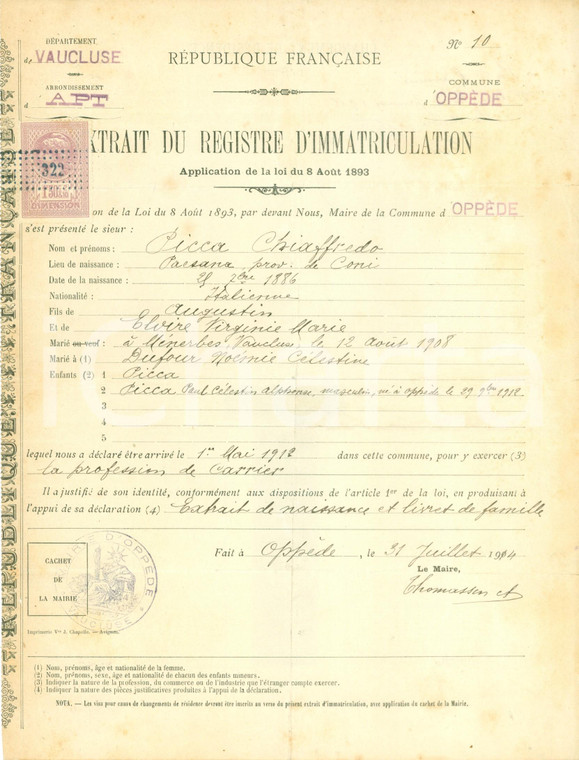 DÉPARTEMENT
de VAUCLUSE
ARRONDISSEMENT
d APT
RÉPUBLIQUE FRANÇAISE
No 10
COMMUNE
d'OPPÈDE
EXTRAIT DU REGISTRE D'IMMATRICULATION
Application de la loi du 8 Août 1893
322
DIMENSION
on de la Loi du 8 Août 1893, par devant Nous, Maire de la Commune d OPPÈDE
s'est présenté le sieur :
Nom et prénoms : Picca Chiaffredo
Lieu de naissance : Paesana prov. de Coni
Date de la naissance : 25 7bre 1886
Nationalité : Italienne
Fils de Augustin
Et de Elvire Virginie Marie
Marié ou veuf : à Ménerbes, Vaucluse, le 12 août 1908
Marié à (1) Dufour Noémie Célestine
Enfants (2) 1 Picca
2 Picca Paul Célestin Alphonse, masculin, né à oppède le 29 9bre 1912
3
4
5
lequel nous a déclaré être arrivé le 1er Mai 1912 dans cette commune, pour y exercer (3)
la profession de carrier
Il a justifié de son identité, conformément aux dispositions de l'article 1er de la loi, en produisant à
l'appui de sa déclaration (4) Extrait de naissance et livret de famille
Fait à Oppède, le 31 Juillet 1914
Le Maire,
Thomassin
CACHET
DE
LA MAIRIE
D'OPPÈDE
VAUCLUSE
Imprimerie Vve J. Chapelle. — Avignon.
(1) Nom, prénoms, âge et nationalité de la femme.
(2) Nom, prénoms, sexe, âge et nationalité de chacun des enfants mineurs.
(3) Indiquer la nature de la profession, du commerce ou de l'industrie que l'étranger compte exercer.
(4) Indiquer la nature des pièces justificatives produites à l'appui de la déclaration.
NOTA. — Les visa pour cause de changements de résidence devront être inscrits au verso du présent extrait d'immatriculation, avec application du cachet de la Mairie.